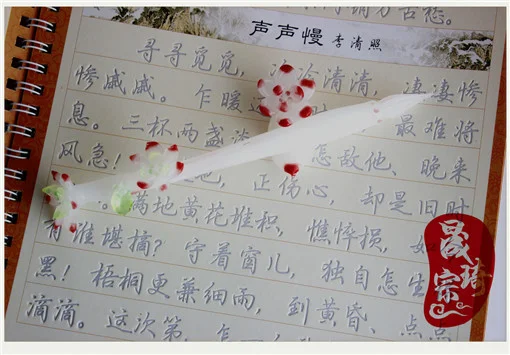 万古愁。
声声慢 李清照
寻寻觅觅，冷冷清清，凄凄惨
惨戚戚。乍暖还 最难将
息。三杯两盏淡 怎敌他、晚来
风急！ 也，正伤心，却是旧时
满地黄花堆积，憔悴损，如
有谁堪摘？守着窗儿，独自怎生
黑！梧桐更兼细雨，到黄昏、点点
滴滴。这次第，怎一
晟琦宗